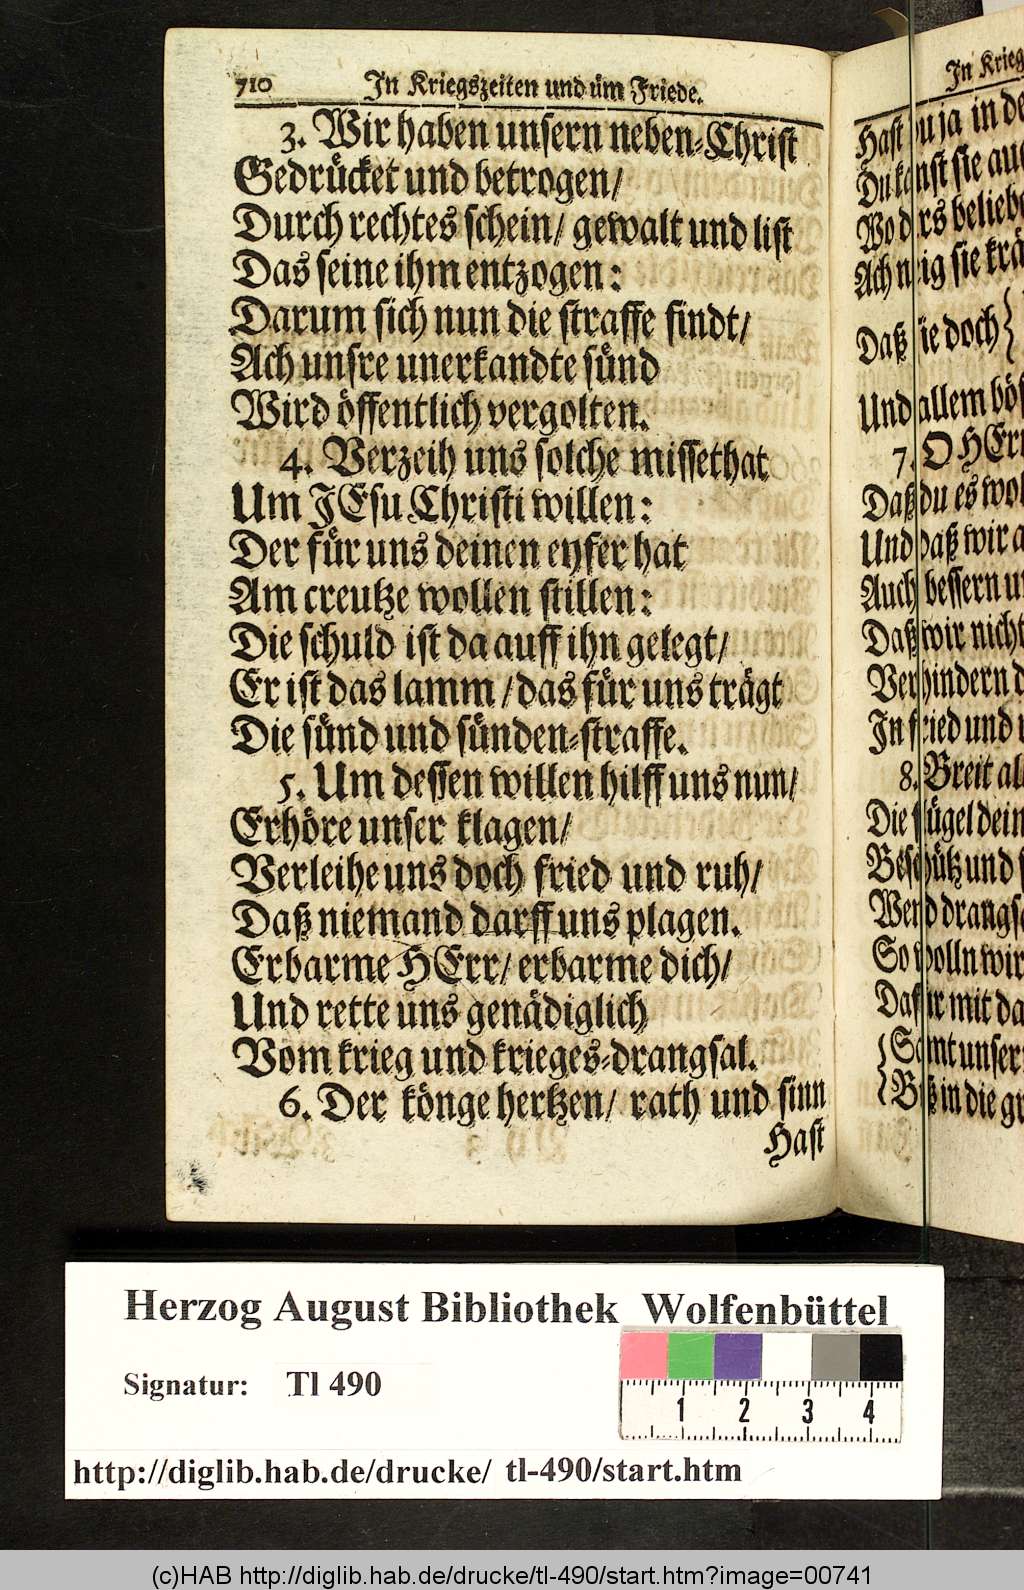 710 In Kriegszeiten und üm Friede.
3. Wir haben unsern neben-Christ
Gedrücket und betrogen/
Durch rechtes schein/ gewalt und list
Das seine ihm entzogen:
Darum sich nun die straffe findt/
Ach unsre unerkandte sünd
Wird öffentlich vergolten.
4. Verzeih uns solche missethat
Um JEsu Christi willen:
Der für uns deinen eyfer hat
Am creutze wollen stillen:
Die schuld ist da auff ihn gelegt/
Er ist das lamm/ das für uns trägt
Die sünd und sünden-straffe.
5. Um dessen willen hilff uns nun/
Erhöre unser klagen/
Verleihe uns doch fried und ruh/
Daß niemand darff uns plagen.
Erbarme HErr/ erbarme dich/
Und rette uns genädiglich
Vom krieg und krieges-drangsal.
6. Der könge hertzen/ rath und sinn
Hast
In Krieg
Hast du ja in de
Du kanst sie auc
Wo dirs beliebe
Ach neig sie krä
Daß sie doch {
Und allem bös
7. O HErr
Daß du es wol
Und daß wir a
Auch bessern un
Daß wir nicht
Verhindern d
In fried und
8. Breit al
Die flügel dein
Beschütz und
Wend drangsa
So wolln wir
Dafür mit da
{Samt unser
{Biß in die gr
Herzog August Bibliothek Wolfenbüttel
Signatur: Tl 490
1 2 3 4
http://diglib.hab.de/drucke/ tl-490/start.htm
(c)HAB http://diglib.hab.de/drucke/tl-490/start.htm?image=00741